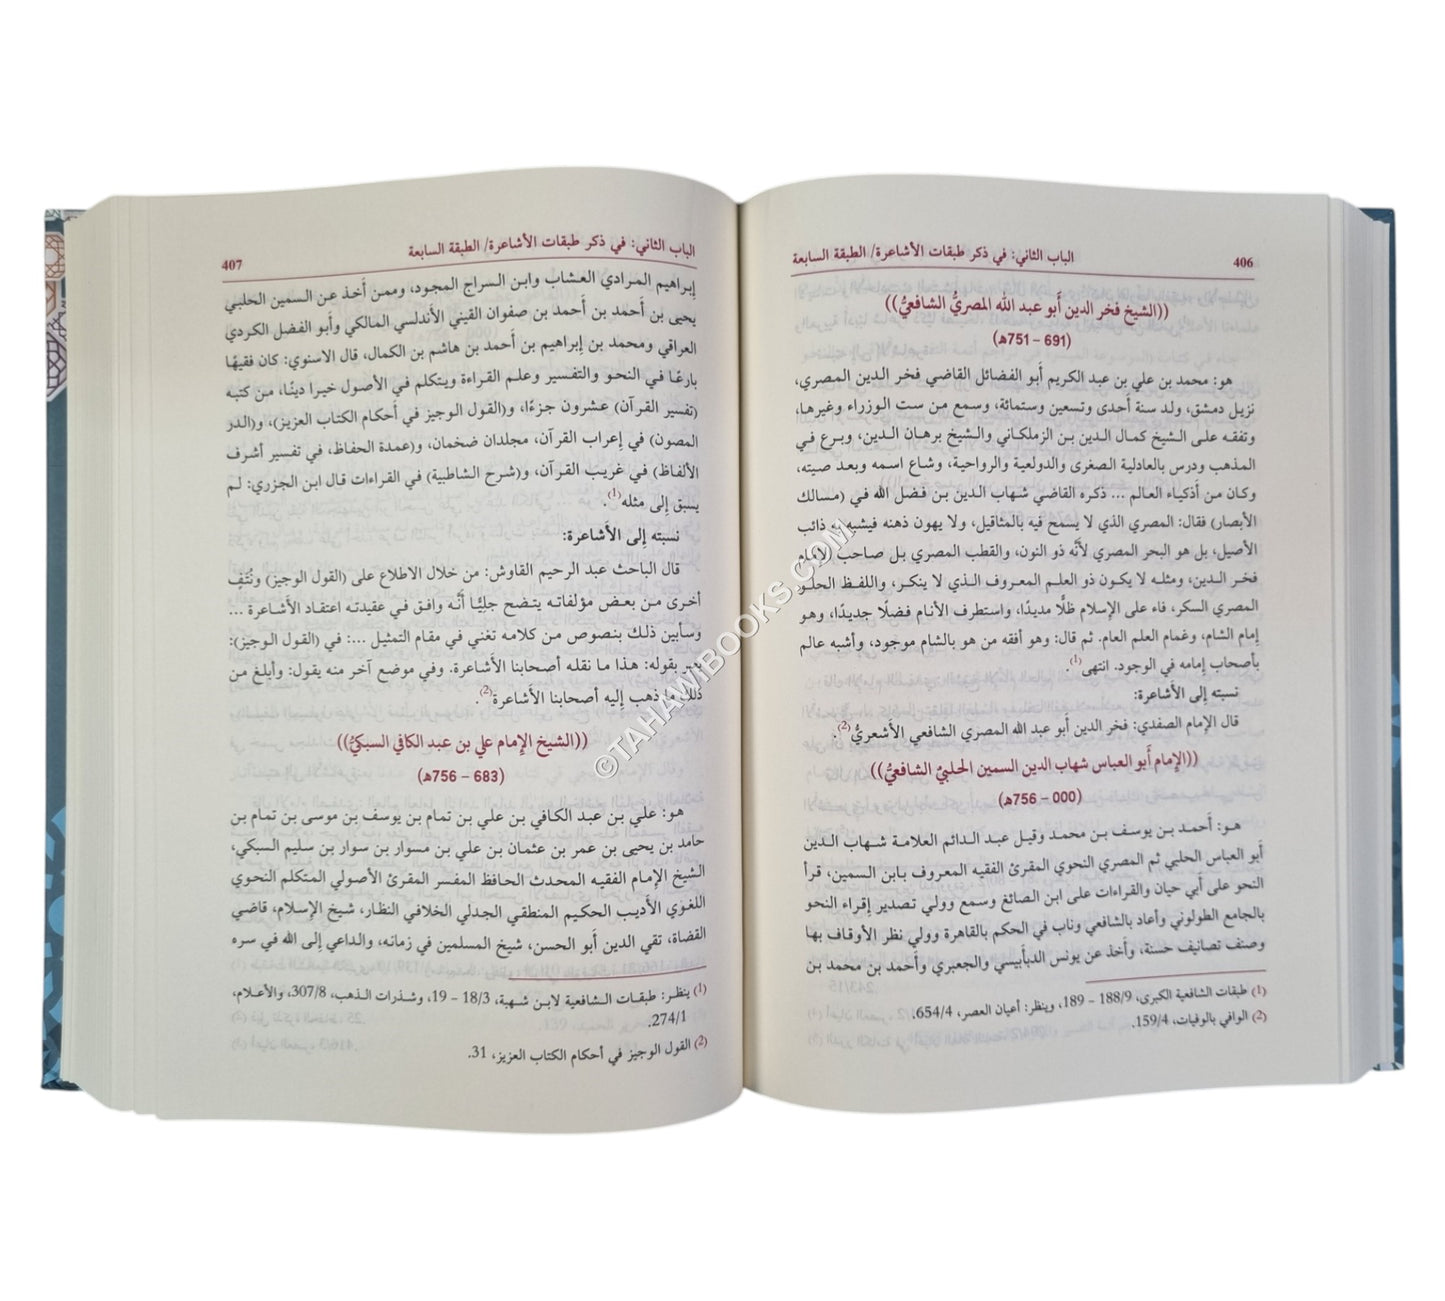 406
الباب الثاني: في ذكر طبقات الأشاعرة/ الطبقة السابعة
((الشيخ فخر الدين أبو عبد الله المصريُّ الشافعيُّ))
(691 – 751هـ)
هو: محمد بن علي بن عبد الكريم أبو الفضائل القاضي فخر الدين المصري،
نزيل دمشق، ولد سنة أحدى وتسعين وستمائة، وسمع من ست الوزراء وغيرها،
وتفقه على الشيخ كمال الدين بن الزملكاني والشيخ برهان الدين، وبرع في
المذهب ودرس بالعادلية الصغرى والدولعية والرواحية، وشاع اسمه وبعد صيته،
وكان من أذكياء العالم ... ذكره القاضي شهاب الدين بن فضل الله في (مسالك
الأبصار) فقال: المصري الذي لا يسمح فيه بالمثاقيل، ولا يهون ذهنه فيشبه ذائب
الأصيل، بل هو البحر المصري لأنَّه ذو النون، والقطب المصري بل صاحب الإمام
فخر الدين، ومثله لا يكون ذو العلم المعروف الذي لا ينكر، واللفظ الحلو
المصري السكر، فاء على الإسلام ظلًّا مديدًا، واستطرف الأنام فضلًا جديدًا، وهو
إمام الشام، وغمام العلم العام. ثم قال: وهو أفقه من هو بالشام موجود، وأشبه عالم
بأصحاب إمامه في الوجود. انتهى(1).
نسبته إلى الأشاعرة:
قال الإمام الصفدي: فخر الدين أبو عبد الله المصري الشافعي الأشعريُّ(2).
((الإمام أبو العباس شهاب الدين السمين الحلبيُّ الشافعيُّ))
(000 – 756هـ)
هو: أحمد بن يوسف بن محمد وقيل عبد الدائم العلامة شهاب الدين
أبو العباس الحلبي ثم المصري النحوي المقرئ الفقيه المعروف بابن السمين، قرأ
النحو على أبي حيان والقراءات على ابن الصائغ وسمع وولي تصدير إقراء النحو
بالجامع الطولوني وأعاد بالشافعي وناب في الحكم بالقاهرة وولي نظر الأوقاف بها
وصنف تصانيف حسنة، وأخذ عن يونس الدبابيسي والجعبري وأحمد بن محمد بن
(1) طبقات الشافعية الكبرى، 188/9 – 189، وينظر: أعيان العصر، 654/4.
(2) الوافي بالوفيات، 159/4.
الباب الثاني: في ذكر طبقات الأشاعرة/ الطبقة السابعة
407
إبراهيم المرادي العشاب وابن السراج المجود، وممن أخذ عن السمين الحلبي
يحيى بن أحمد بن أحمد بن صفوان القيني الأندلسي المالكي وأبو الفضل الكردي
العراقي ومحمد بن إبراهيم بن أحمد بن هاشم بن الكمال، قال الاسنوي: كان فقيهًا
بارعًا في النحو والتفسير وعلم القراءة ويتكلم في الأصول خيرا دينًا، من كتبه
(تفسير القرآن) عشرون جزءًا، و(القول الوجيز في أحكام الكتاب العزيز)، و(الدر
المصون) في إعراب القرآن، مجلدان ضخمان، و(عمدة الحفاظ، في تفسير أشرف
الألفاظ) في غريب القرآن، و(شرح الشاطبية) في القراءات قال ابن الجزري: لم
يسبق إلى مثله(1).
نسبته إلى الأشاعرة:
قال الباحث عبد الرحيم القاوش: من خلال الاطلاع على (القول الوجيز) ونُتَفٍ
أخرى من بعض مؤلفاته يتضح جليًّا أنَّه وافق في عقيدته اعتقاد الأشاعرة ...
وسأبين ذلك بنصوص من كلامه تغني في مقام التمثيل ...: في (القول الوجيز):
يعبر بقوله: هذا ما نقله أصحابنا الأشاعرة. وفي موضع آخر منه يقول: وأبلغ من
ذلك ما ذهب إليه أصحابنا الأشاعرة(2).
((الشيخ الإمام علي بن عبد الكافي السبكيُّ))
(683 – 756هـ)
هو: علي بن عبد الكافي بن علي بن تمام بن يوسف بن موسى بن تمام بن
حامد بن يحيى بن عمر بن عثمان بن علي بن مسوار بن سوار بن سليم السبكي،
الشيخ الإمام الفقيه المحدث الحافظ المفسر المقرئ الأصولي المتكلم النحوي
اللغوي الأديب الحكيم المنطقي الجدلي الخلافي النظار، شيخ الإسلام، قاضي
القضاة، تقي الدين أبو الحسن، شيخ المسلمين في زمانه، والداعي إلى الله في سره
(1) ينظر: طبقات الشافعية لابن شهبة، 18/3 – 19، وشذرات الذهب، 307/8، والأعلام،
274/1.
(2) القول الوجيز في أحكام الكتاب العزيز، 31.
©TAHAWIBOOKS.COM